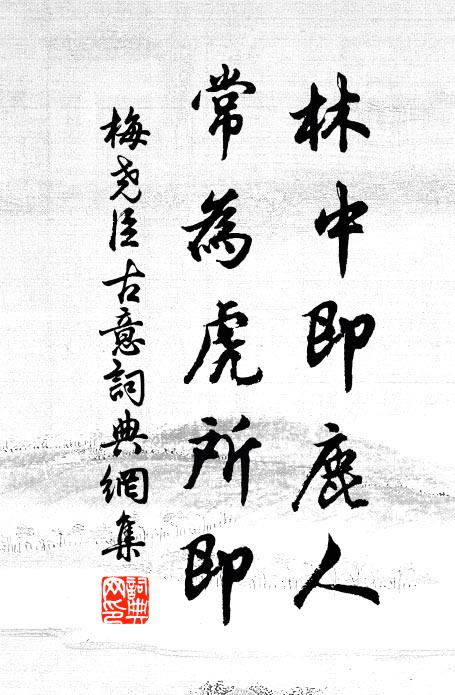 林中即鹿人
常為虎所即
梅尧臣古意詞典網集
詞典
网印